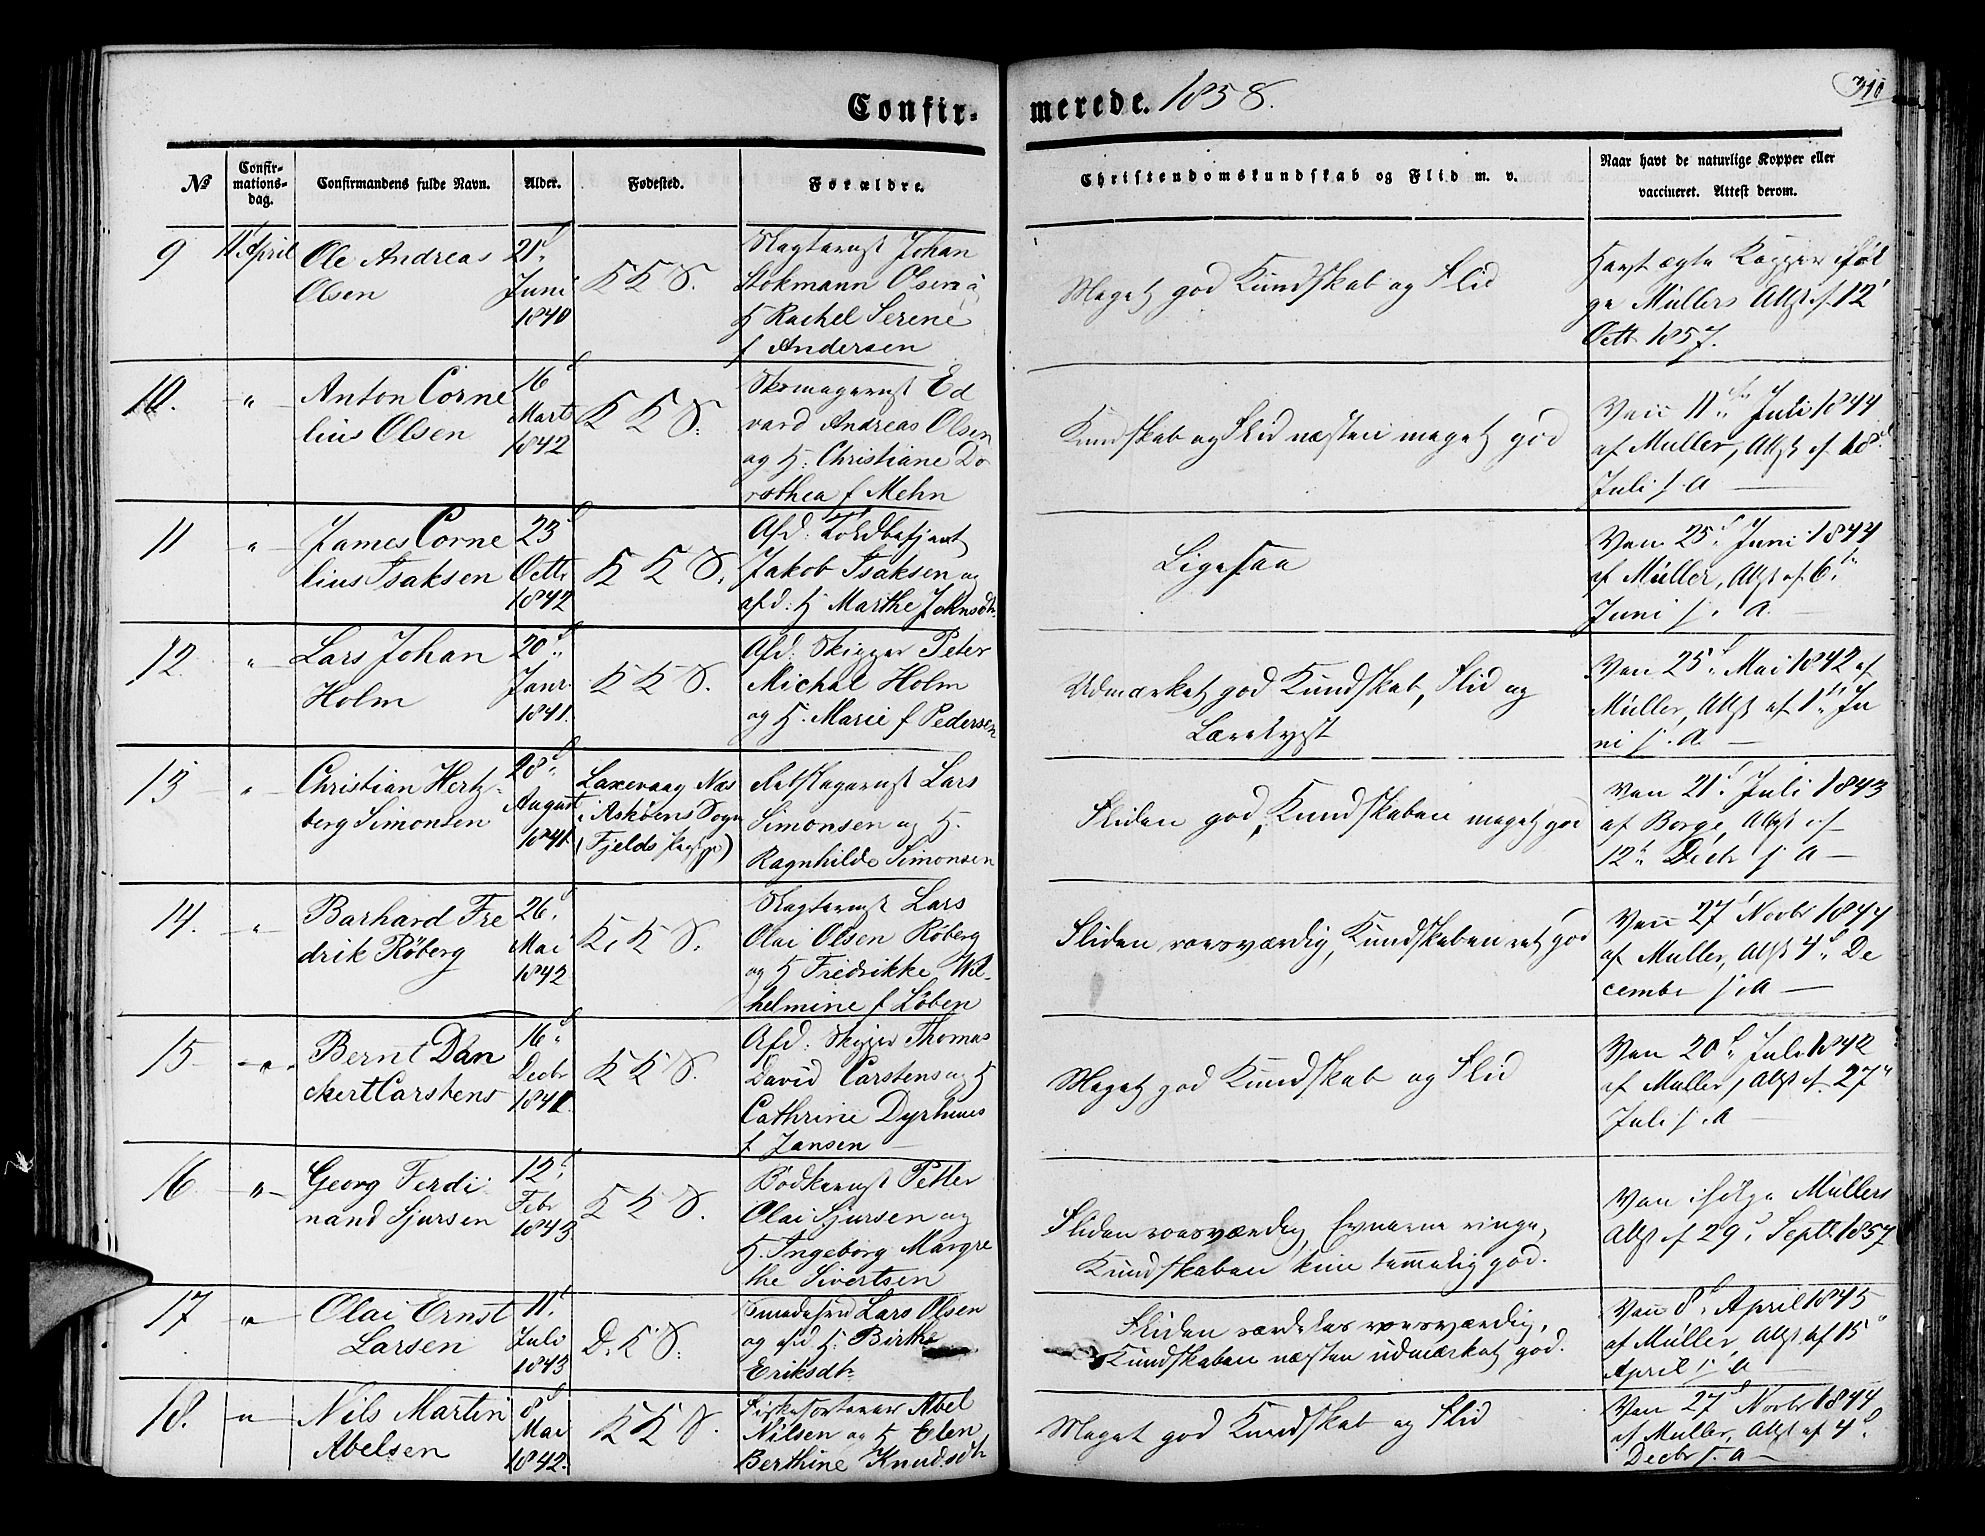 Confir-
merede. 1858.
310
No
Confir-
mations-
dag.
Confirmandens fulde Navn.
Alder.
Fødested.
Forældre.
Christendomskundskab og Flid m. v.
Naar havt de naturlige Kopper eller
vaccineret. Attest derom.
9
11' April
Ole Andreas
Olsen
21d
Juni
1840
K K S.
Slagtersvst Johan
Stokmann Olsen
H Rachel Serene
f Andersen
Meget god Kundskab og Flid
Havt ægte Kopper iføl
ge Müllers Attst af 12'
Octb 1857.
10.
"
Anton Corne
lius Olsen
16d
Mart
1842
K K S.
Skomagersvst Ed
vard Andreas Olsen
og H. Christiane Do
rothea f Mehn
Kundskab og Flid næsten meget god
Vacc 11te Juli 1844
af Muller, Attst af 18d
Juli s. A
11
"
James Corne
lius Isaksen
23d
Octb
1842
K K S.
Afd. Toldbetjent
Jakob Isaksen og
afd. H Marthe Johnsdtr
Ligesaa
Vacc 25d Juni 1844
af Müller, Attst af 6te
Juni s. a.
12.
"
Lars Johan
Holm
20d
Janr
1841.
K K S.
Afd. Skipper Peter
Michal Holm
og H. Marie f Pedersen
Udmærket god Kundskab, Flid og
Lærelyst
Vacc 25d Mai 1842 af
Müller, Attst af 1te Ju
ni s. A.
13
"
Christian Hertz-
berg Simonsen
28d
August
1841.
Laxevaag Næs
i Askøens Sogn
(Fjelds Præstegj)
Lars
Simonsen og H.
Ragnhilde Simonsen
Fliden god, Kundskaben meget god
Vacc 21d Juli 1843
af Borge, Attst af
12te Decb s. A
14.
"
Barhard Fre
drik Røberg
26d
Mai
1842
K. K S.
Slagtersvst Lars
Olai Olsen Røberg
og H Fredrikke Wil-
helmine f Løben
Fliden roesværdig, Kundskaben ret god
Vacc 27' Novbr 1844
af Muller, Attst 4d De
cember s. A
15
"
Bernt Dan
ckert Carstens
16d
Decbr
1841.
K K S.
Afd. Skipper Thomas
David Carstens og H
Cathrine Dyrhuus
f Jansen
Meget god Kundskab og Flid
Vacc 20d Juli 1842
af Muller, Attst af 27"
Juli s. A
16
"
Georg Ferdi
nand Sjursen
12d
Febr
1843
K K S.
Bødkersvst Petter
Olai Sjursen og
H. Ingeborg Margre
the Sivertsen
Fliden roesværdig, Evnerne ringe,
Kundskaben kun temmelig god.
Vacc ifølge Müllers
Attst af 29d Septb 1857
17
"
Olai Ernst
Larsen
11d
Juli
1843
D. K S.
Smedesvend Lars Olsen
og afd H. Birthe
Eriksdtr
Fliden særdeles roesværdig,
Kundskaben næsten udmærket god.
Vacc 8d April 1845
af Müller, Attst af 15"
April s. A
18.
"
Nils Martin
Abelsen
8d
Mai
1842.
K K S.
Abel
Nilsen og H Elen
Berthine Knudsdtr
Meget god Kundskab og Flid
Vacc 27d Novbr 1844
af Muller, Attst af 4d
Decbr s. A